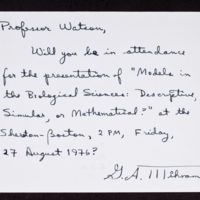 Professor Watson,
Will you be in attendance
for the presentation of "Models in
the Biological Sciences: Descriptive,
Simular, or Mathematical?" at the
Sheraton-Boston, 2 PM, Friday,
27 August 1976?
G.A. Mihram